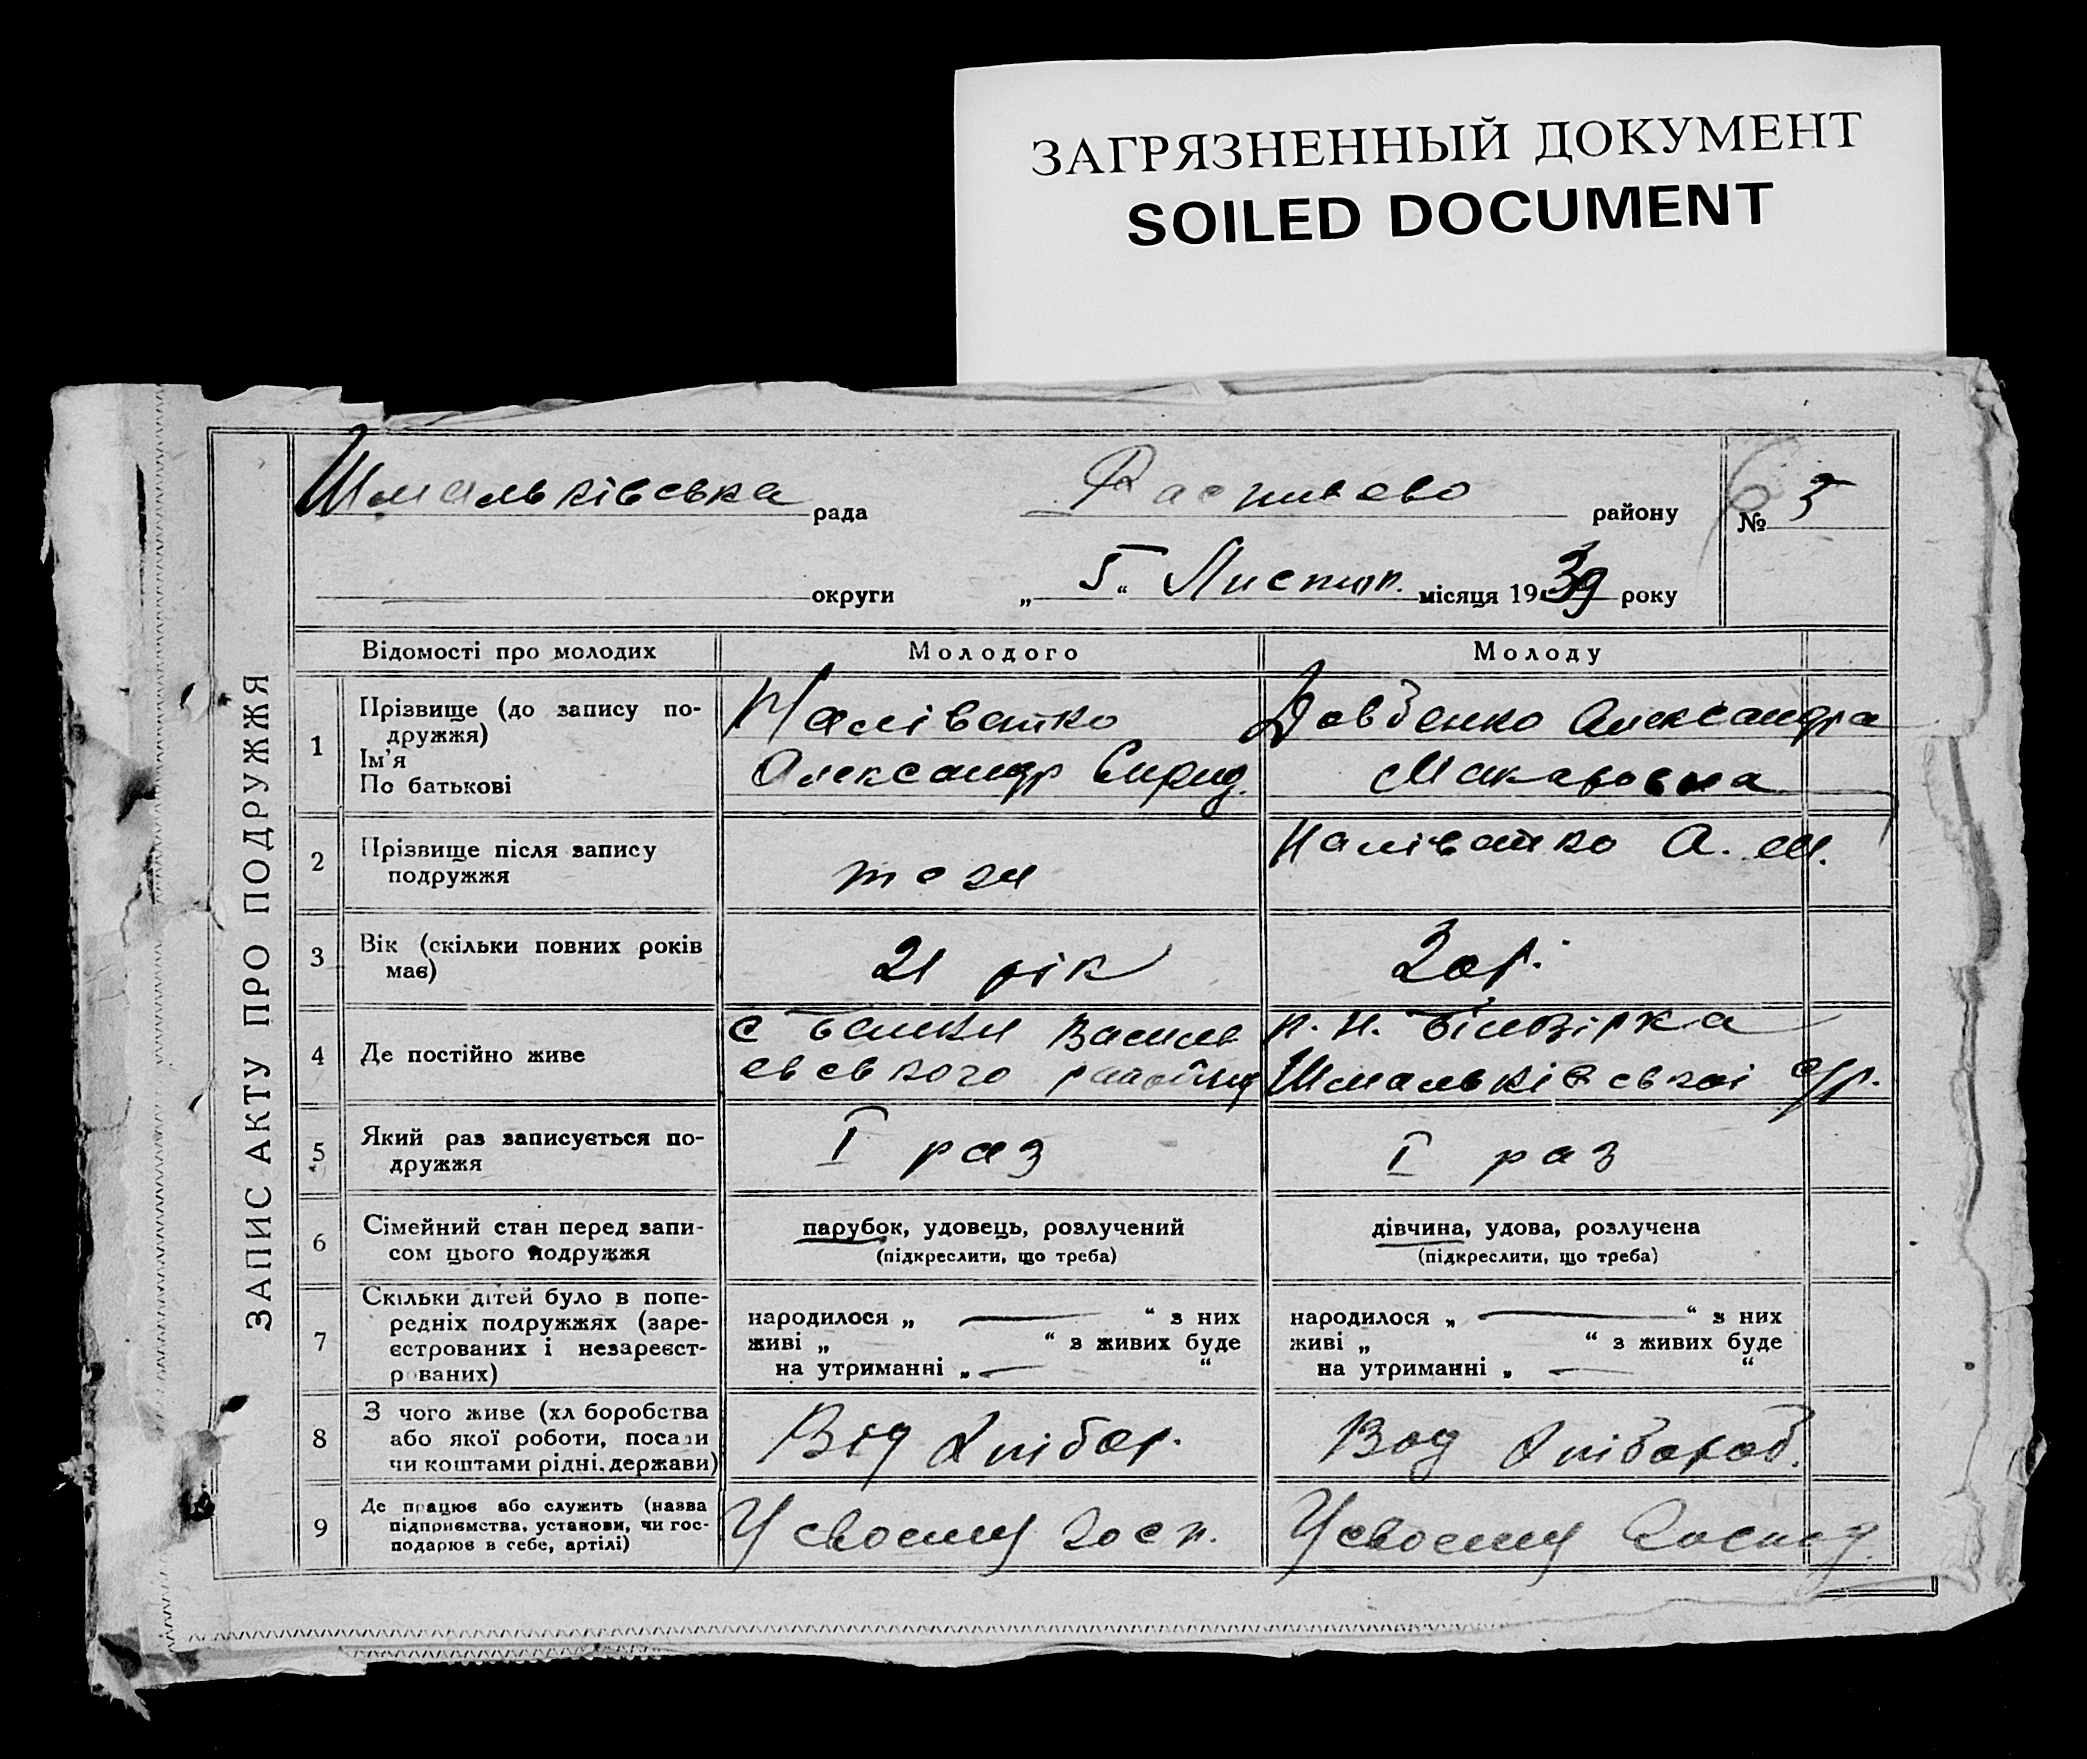 ЗАГРЯЗНЕННЫЙ ДОКУМЕНТ
SOILED DOCUMENT
ЗАПИС АКТУ ПРО ПОДРУЖЖЯ
Шмальківська рада району № 5
округи „ 5 “ Листоп. місяця 1939 року
Відомості про молодих Молодого Молоду
1 Прізвище (до запису по-
дружжя)
Ім'я
По батькові
Наліватко
Александр Спирид.
Довбенко Александра
Макаровна
2 Прізвище після запису
подружжя
Наліватко А. М.
3 Вік (скільки повних років
має)
21 рік
20 р.
4 Де постійно живе
с Василь
евського района
Шмальківської с/р.
5 Який раз записується по-
дружжя
I раз
I раз
6 Сімейний стан перед запи-
сом цього подружжя
парубок, удовець, розлучений
(підкреслити, що треба)
дівчина, удова, розлучена
(підкреслити, що треба)
7 Скільки дітей було в попе-
редніх подружжях (заре-
єстрованих і незареєст-
рованих)
народилося „ — “ з них
живі „ “ з живих буде
на утриманні „ — “
народилося „ — “ з них
живі „ “ з живих буде
на утриманні „ — “
8 З чого живе (хл боробства
або якої роботи, посади
чи коштами рідні, держави)
Від хлібор.
Вод хлібороб.
9 Де працює або служить (назва
підприємства, установи, чи гос-
подарює в себе, артілі)
У своему госп.
У своему господ.